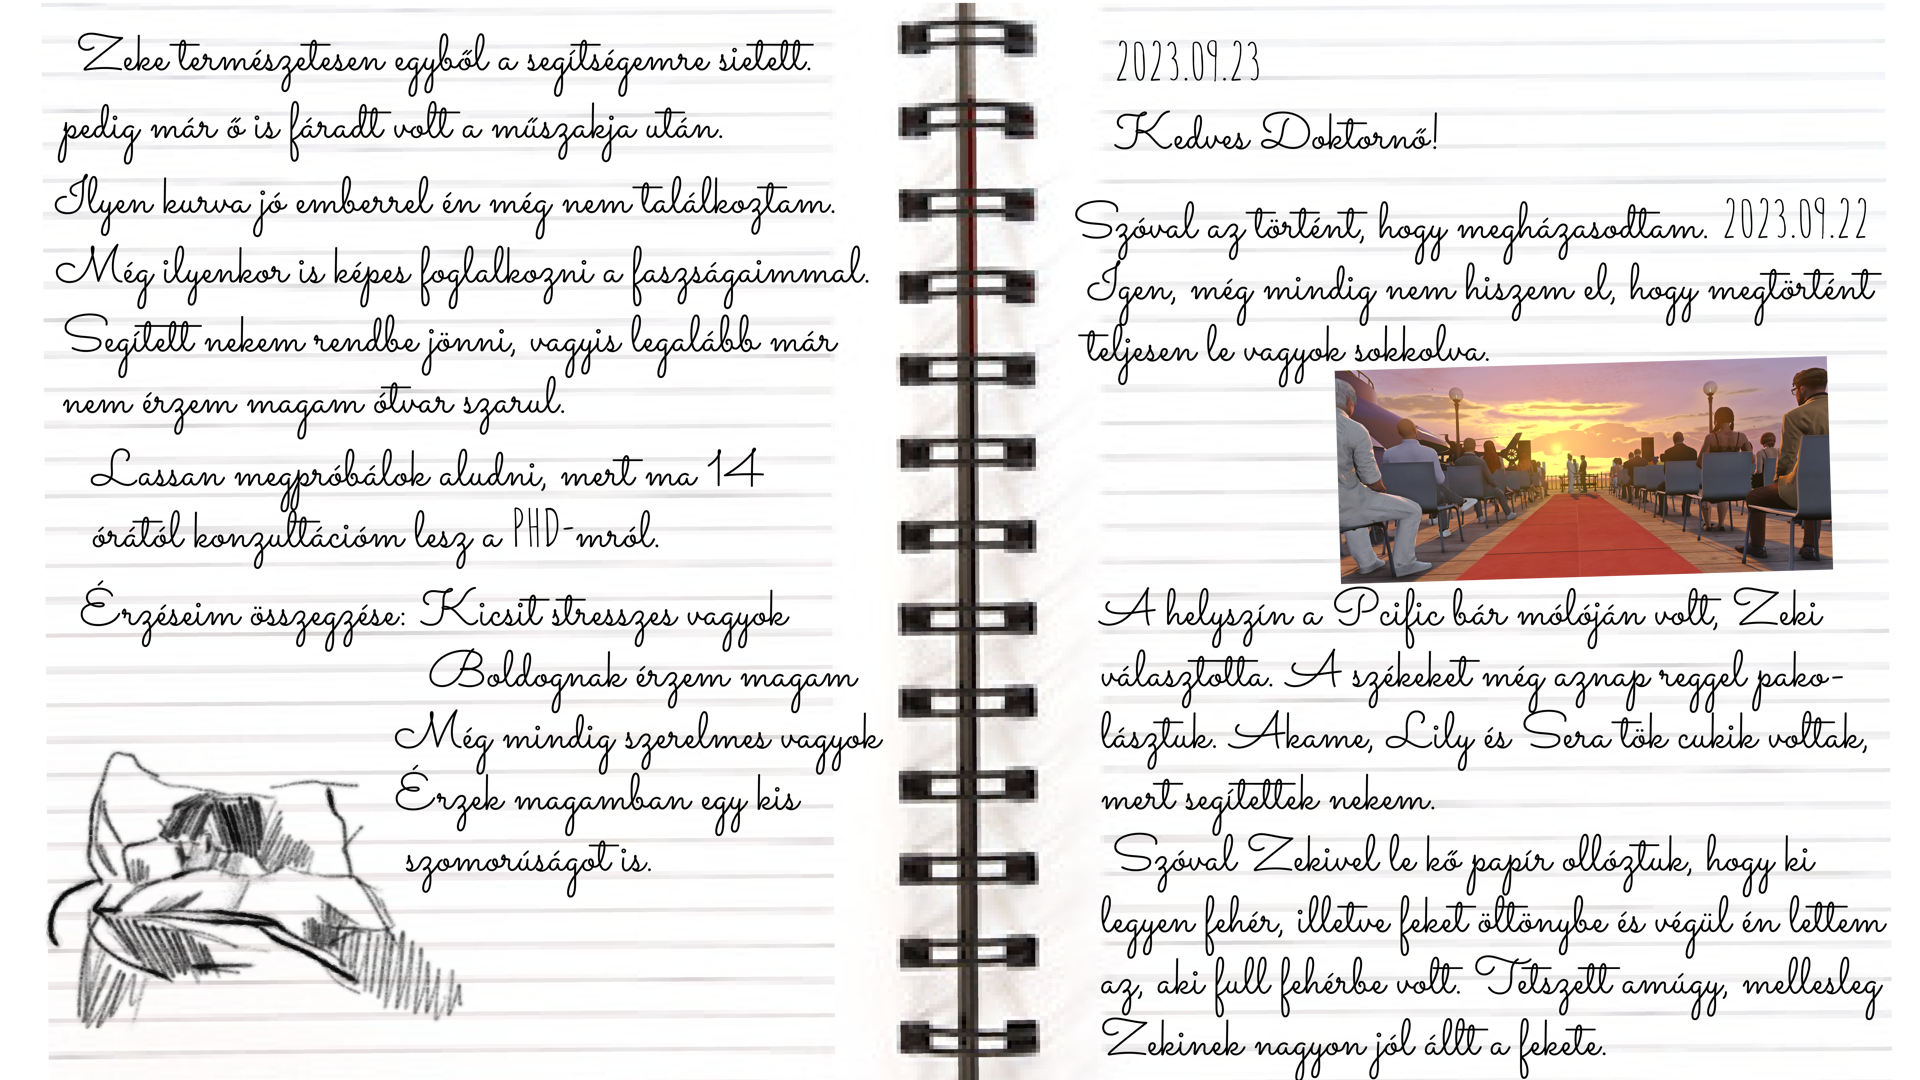 Zeke természetesen egyből a segítségemre sietett.
pedig már ő is fáradt volt a műszakja után.
Ilyen kurva jó emberrel én még nem találkoztam.
Még ilyenkor is képes foglalkozni a faszságaimmal.
Segített nekem rendbe jönni, vagyis legalább már
nem érzem magam ótvar szarul.
Lassan megpróbálok aludni, mert ma 14
órától konzultációm lesz a PHD-mról.
Érzéseim összegzése: Kicsit stresszes vagyok
Boldognak érzem magam
Még mindig szerelmes vagyok
Érzek magamban egy kis
szomorúságot is.
2023.09.23
Kedves Doktornő!
Szóval az történt, hogy megházasodtam. 2023.09.22
Igen, még mindig nem hiszem el, hogy megtörtént
teljesen le vagyok sokkolva.
A helyszín a Pcific bár mólóján volt, Zeki
választotta. A székeket még aznap reggel pako-
lásztuk. Akame, Lily és Sera tök cukik voltak,
mert segítettek nekem.
Szóval Zekivel le kő papír ollóztuk, hogy ki
legyen fehér, illetve feket öltönybe és végül én lettem
az, aki full fehérbe volt. Tetszett amúgy, mellesleg
Zekinek nagyon jól állt a fekete.